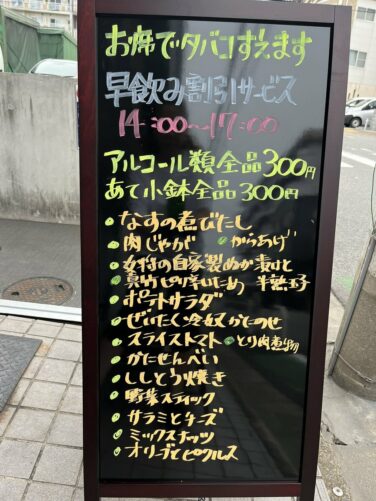 お席でタバコすえます
早飲み割引サービス
14:00〜17:00
アルコール類全品300円
あて小鉢全品300円
なすの煮びたし
肉じゃが からあげ
自家製ぬか漬け
半熟玉子
ポテトサラダ
ぜいたく冷奴かにのせ
スライストマト とり肉煮物
かにせんべい
ししとう焼き
野菜スティック
サラミとチーズ
ミックスナッツ
オリーブとピクルス